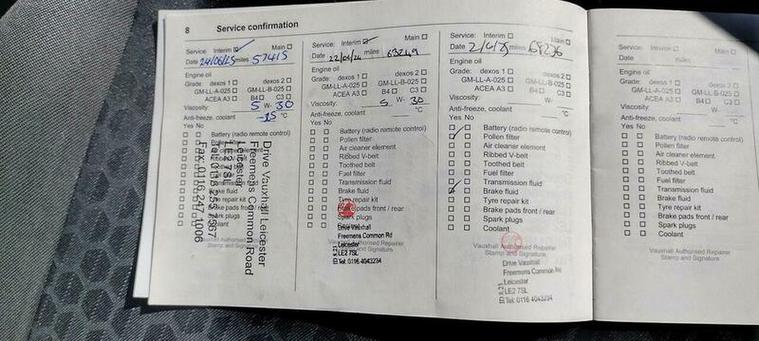 8 Service confirmation
Service: Interim ☑ Main ☐
Date miles 57415
Engine oil
Grade: dexos 1 ☐ dexos 2 ☐
GM-LL-A-025 ☐ GM-LL-B-025 ☐
ACEA A3 ☐ B4 ☐ C3 ☐
Viscosity: 5 W- 30
Anti-freeze, coolant -15 °C
Yes No
Battery (radio remote control)
Drive Vauxhall Leicester
Freemens Common Road
Leicester
Fax: 0116 247 1006
Vauxhall Authorised Repairer
Stamp and Signature
Service: Interim ☑ Main ☐
Date 22/04/24 miles 63249
Engine oil
Grade: dexos 1 ☐ dexos 2 ☐
GM-LL-A-025 ☐ GM-LL-B-025 ☐
ACEA A3 ☐ B4 ☐ C3 ☐
Viscosity: 5 W- 30
Anti-freeze, coolant °C
Yes No
Battery (radio remote control)
Pollen filter
Air cleaner element
Ribbed V-belt
Toothed belt
Fuel filter
Transmission fluid
Brake fluid
Tyre repair kit
Brake pads front / rear
Spark plugs
Drive Vauxhall
Freemens Common Rd
Leicester
LE2 7SL
Tel: 0116 4043234
Service: Interim ☐ Main ☐
Date 2/4/25 miles
Engine oil
Grade: dexos 1 ☐ dexos 2 ☐
GM-LL-A-025 ☐ GM-LL-B-025 ☐
ACEA A3 ☐ B4 ☐ C3 ☐
Viscosity: W-
Anti-freeze, coolant °C
Yes No
Battery (radio remote control)
Pollen filter
Air cleaner element
Ribbed V-belt
Toothed belt
Fuel filter
Transmission fluid
Brake fluid
Tyre repair kit
Brake pads front / rear
Spark plugs
Coolant
Vauxhall Authorised Repairer
Stamp and Signature
Drive Vauxhall
Freemens Common Rd
Leicester
LE2 7SL
Tel: 0116 4043234
Service: Interim ☐ Main ☐
Date miles
Engine oil
Grade: dexos 1 ☐ dexos 2 ☐
GM-LL-A-025 ☐ GM-LL-B-025 ☐
ACEA A3 ☐ B4 ☐ C3 ☐
Viscosity: W-
Anti-freeze, coolant °C
Yes No
Battery (radio remote control)
Pollen filter
Air cleaner element
Ribbed V-belt
Toothed belt
Fuel filter
Transmission fluid
Brake fluid
Tyre repair kit
Brake pads front / rear
Spark plugs
Coolant
Vauxhall Authorised Repairer
Stamp and Signature